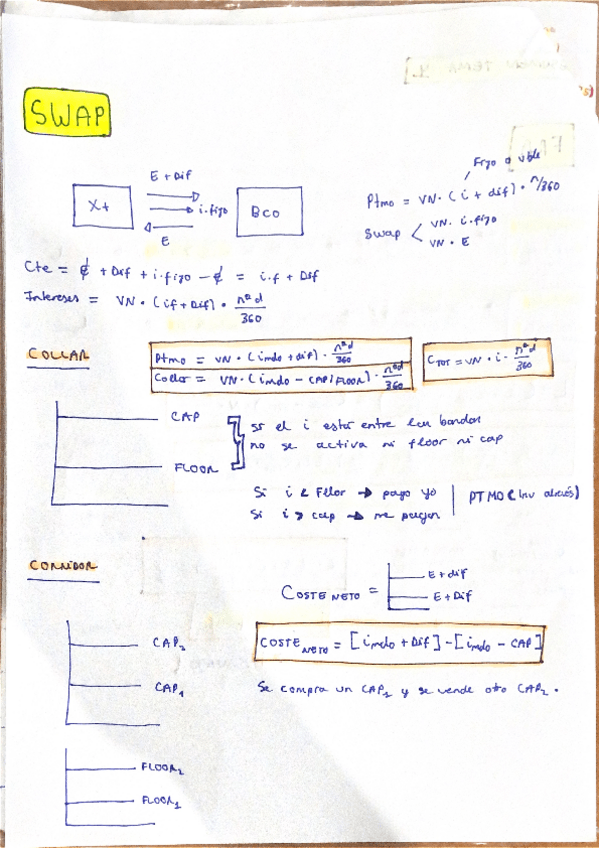 SWAP
E + Dif
i.fijo
E
X+
Bco
Fijo o vble
Ptmo = VN · (i + dif) · n/360
Swap < VN · i.fijo
VN · E
Cte = E + Dif + i.fijo - E = i.f + Dif
Intereses = VN · (if + Dif) · nº d / 360
COLLAR
Ptmo = VN · (imdo + dif) · nº d / 360
Collar = VN · (imdo - CAP/FLOOR) · nº d / 360
CTOT = VN · i · nº d / 360
CAP
FLOOR
si el i está entre las bandas
no se activa ni floor ni cap
Si i < Fllor → pago yo
Si i > cap → me pagan
PTMO (Inv alrevés)
CORRIDOR
COSTE NETO =
E + dif
E + Dif
CAP2
CAP1
COSTE NETO = [imdo + Dif] - [imdo - CAP]
Se compra un CAP1 y se vende otro CAP2.
FLOOR2
FLOOR1